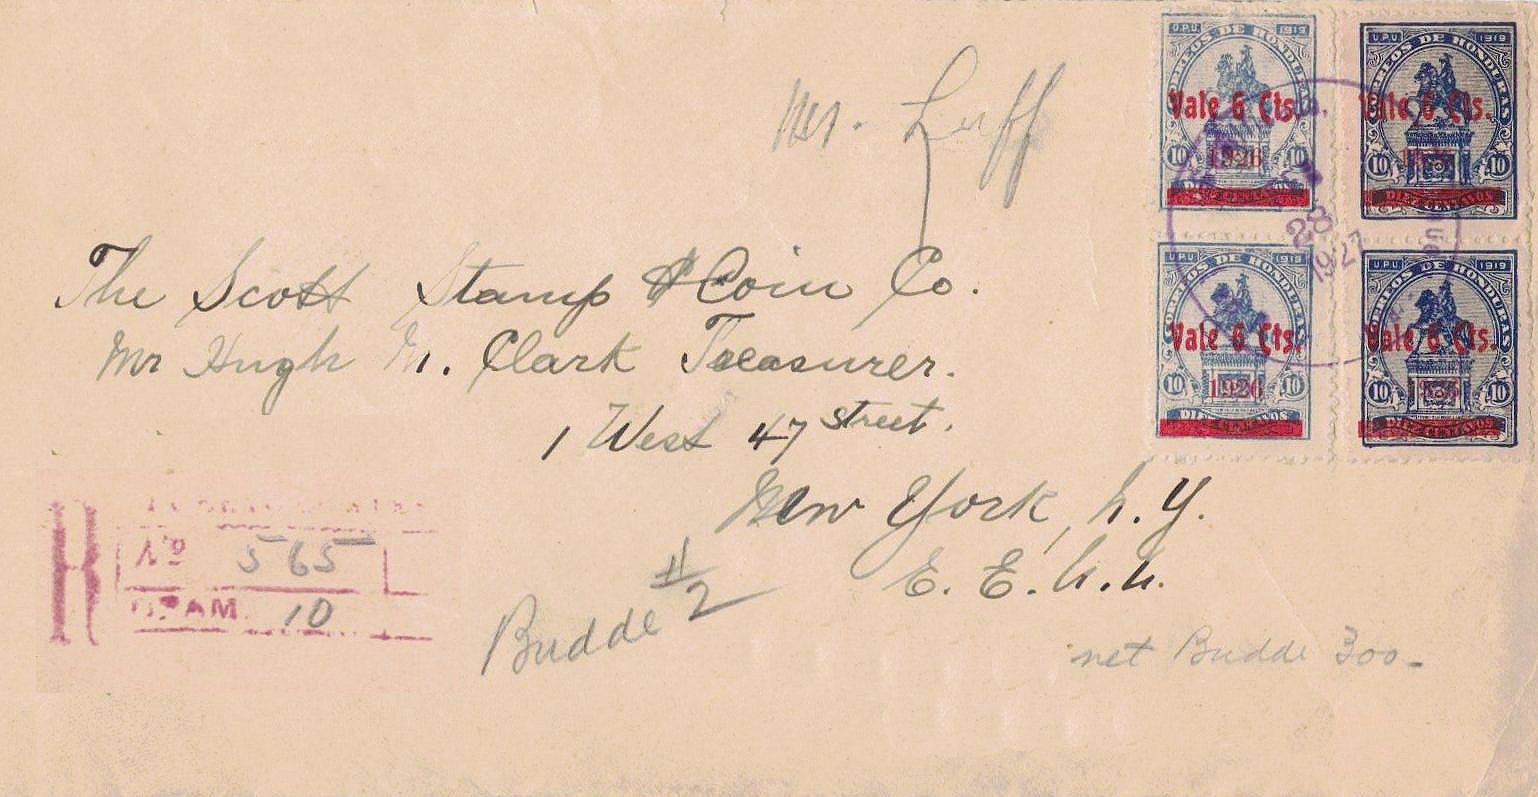 Mr. Luff
The Scott Stamp & Coin Co.
Mr Hugh M. Clark Treasurer.
1 West 47 street.
New York, N.Y.
E. E. U. U.
Budde #2
net Budde 300-
R
No 565
GRAM. 10
U.P.U. 1919
CORREOS DE HONDURAS
Vale 6 Cts.
10 1926 10
DIEZ CENTAVOS
U.P.U. 1919
CORREOS DE HONDURAS
Vale 6 Cts.
10 1926 10
DIEZ CENTAVOS
U.P.U. 1919
CORREOS DE HONDURAS
Vale 6 Cts.
10 1926 10
DIEZ CENTAVOS
U.P.U. 1919
CORREOS DE HONDURAS
Vale 6 Cts.
10 1926 10
DIEZ CENTAVOS
28
1927